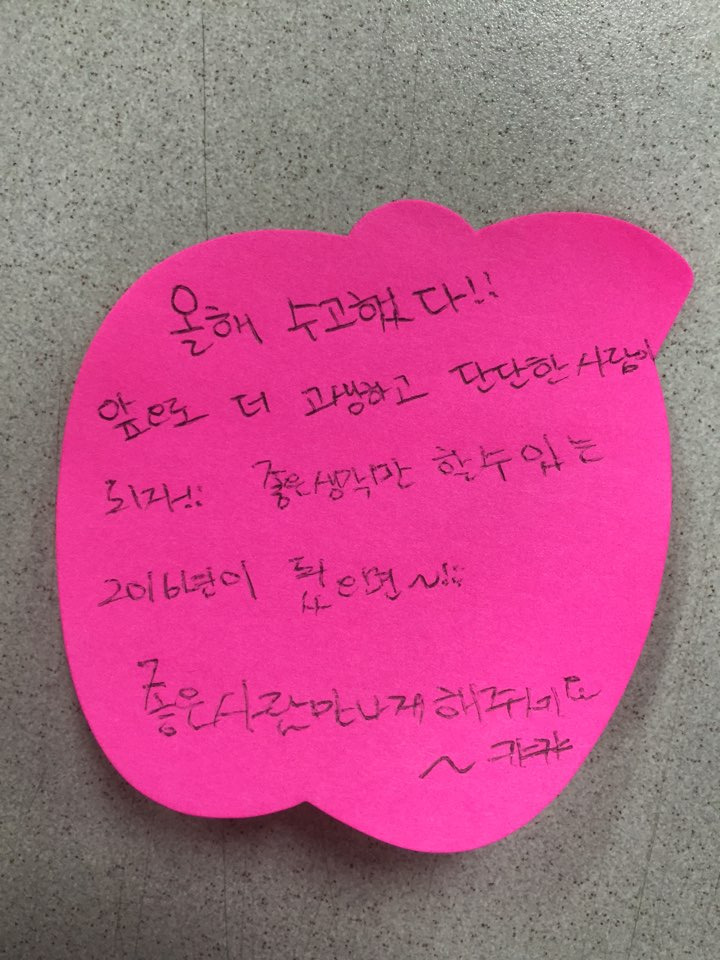 올해 수고했다!!
앞으로 더 고생하고 단단한 사람이
되자!! 좋은생각만 할수있는
2016년이 됬으면~!!
좋은사람만나게해주세요
~ 캬캬